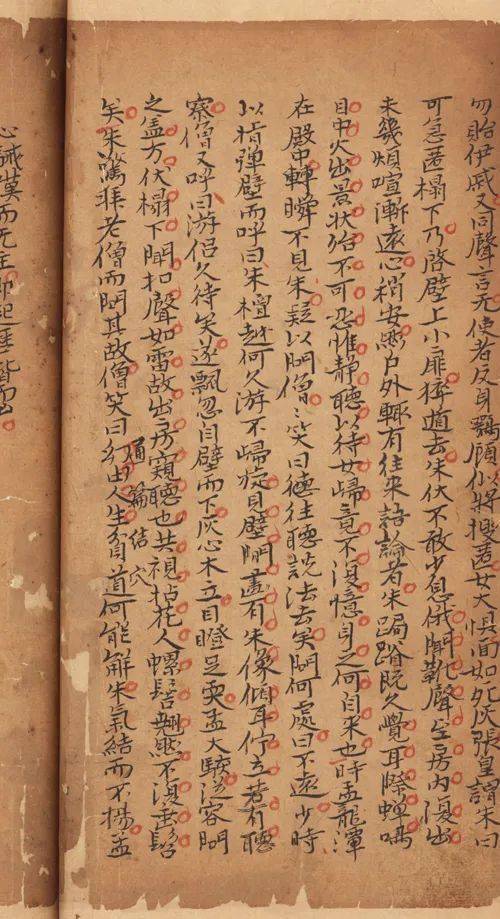 勿貽伊戚又同聲言无使者反身鶚顧似將搜匿女大懼面如死灰張皇謂朱曰
可急匿榻下乃啓壁上小扉猝遁去朱伏不敢少息俄聞靴聲至房內復出
未幾煩喧漸遠心稍安然戶外輒有往來語論者朱跼蹐既久覺耳際蟬鳴
目中火出景狀殆不可忍惟靜聽以待女歸竟不復憶身之何自來也時孟龍潭
在殿中轉瞬不見朱疑以問僧〻笑曰往聽説法去矣問何處曰不遠少時
以指彈壁而呼曰朱檀越何久游不歸旋見壁間畫有朱像傾耳佇立若有聽
察僧又呼曰游侶久待矣遂飄忽自壁而下灰心木立目瞪足耎孟大駭從容問
之盖方伏榻下聞扣聲如雷故出房窺聽也共視拈花人螺髻翹然不復垂髫
通篇結穴
矣朱驚拜老僧而問其故僧笑曰幻由人生貧道何能解朱氣結而不揚孟
心嘆而无主即起歷階而出